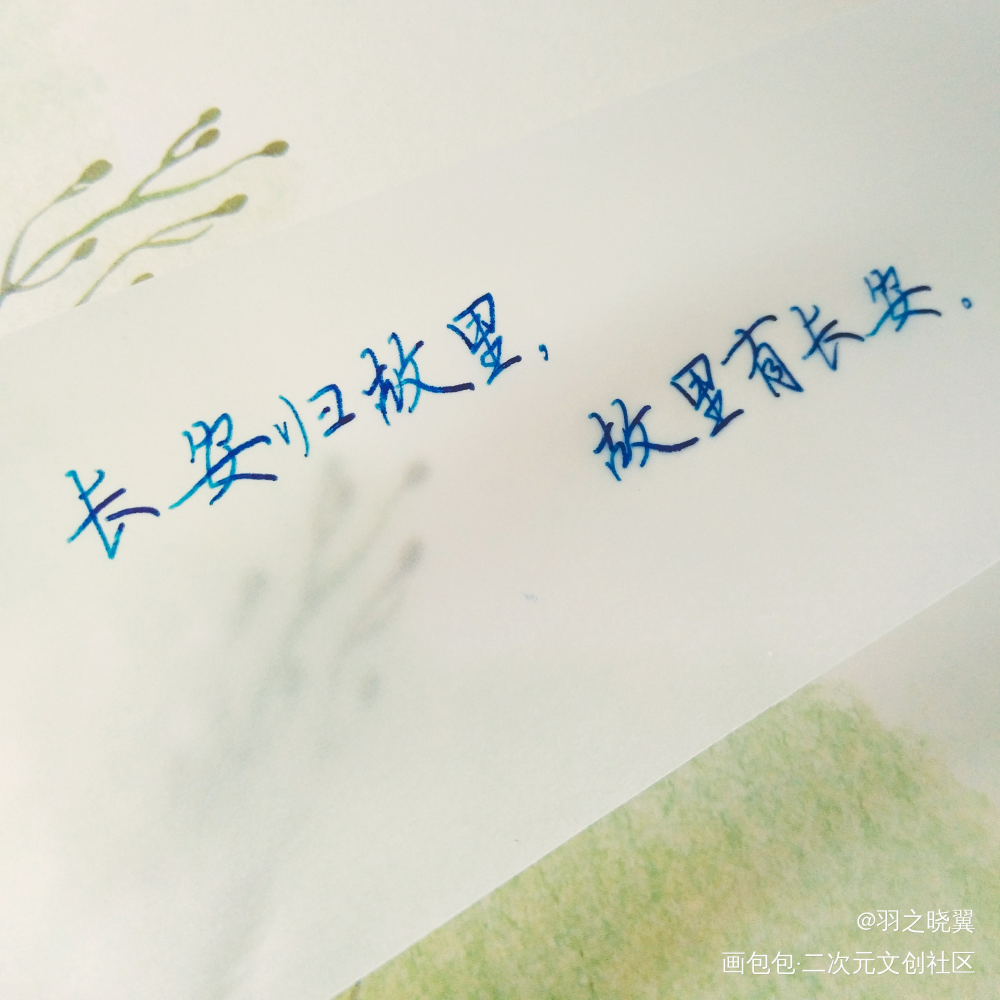 长安归故里，
故里有长安。
@羽之晓翼
画包包·二次元文创社区